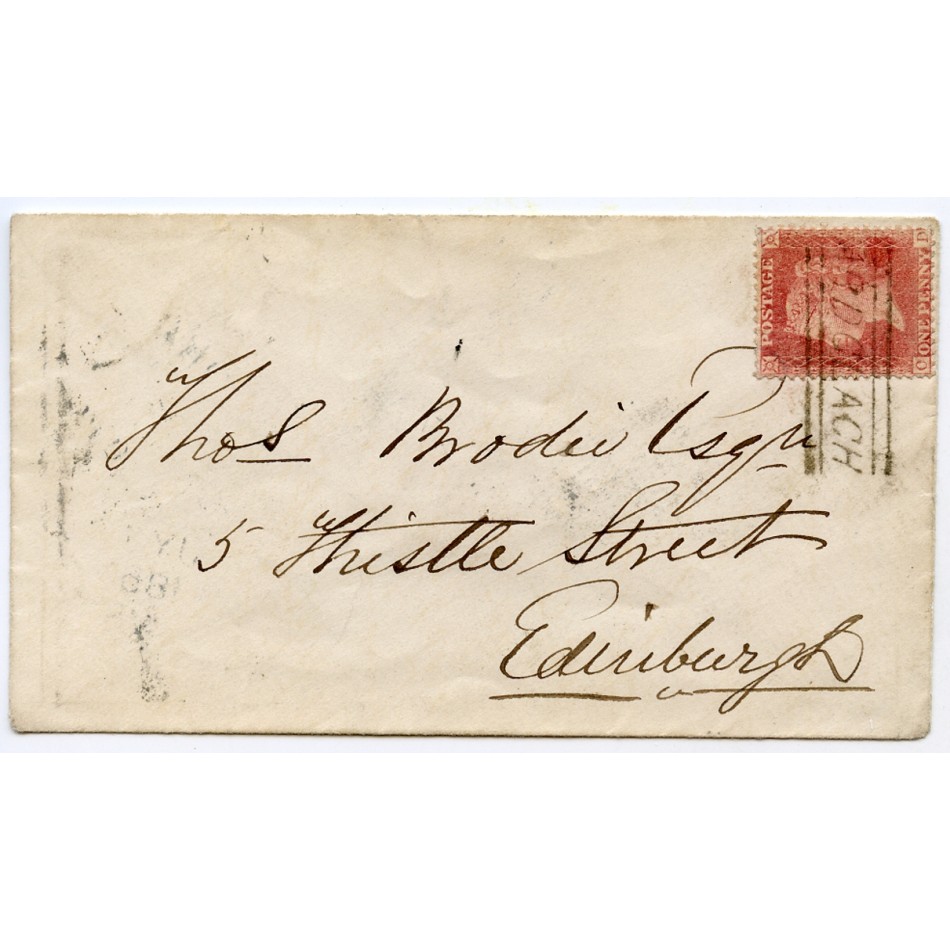 POSTAGE
ONE PENNY
D
C
ACH
Thos Brodie Esqr
5 Thistle Street
Edinburgh